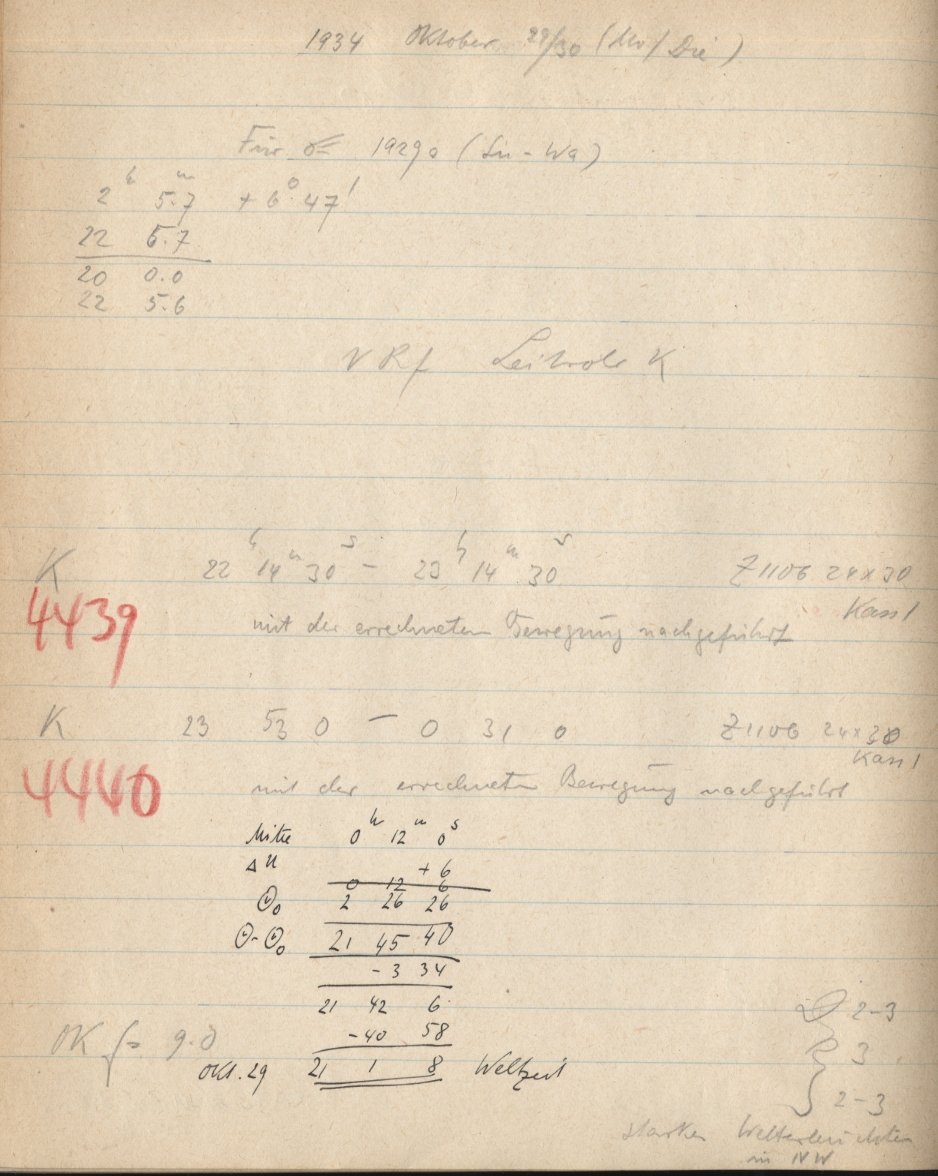 1934 Oktober 29/30 (Mo/Die)
Für 1929a (Su-Wa)
2h 5.7m +6° 47'
22 5.7
20 0.0
22 5.6
V Rf Leitrohr K
K 22h 14m 30s - 23h 14m 30s Z1106 24x30
4439 Kass 1
mit der errechneten Bewegung nachgeführt
K 23 53 0 - 0 31 0 Z1106 24x30
Kass 1
4440 mit der errechneten Bewegung nachgeführt
Mitte 0h 12m 0s
Δu +6
0 12 6
Θ₀ 2 26 26
Θ-Θ₀ 21 45 40
-3 34
21 42 6
-40 58
OK f= 9.0
Okt. 29 21 1 8 Weltzeit
D 2-3
R 3
S 2-3
starkes Wetterleuchten
in NW